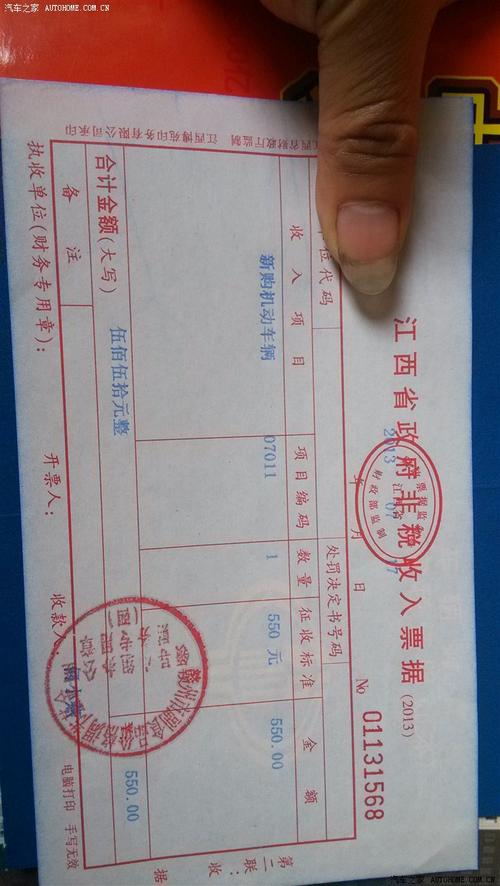 汽车之家 AUTOHOME.COM.CN
江西省政府非税收入票据 (2013)
2013 07 17
年 月 日
№ 01131568
位代码
处罚决定书号码
收入项目 项目编码 数量 征收标准 金额
新购机动车辆 07011 1 550 元 550.00
合计金额(大写) 伍佰伍拾元整 550.00
备注
执收单位(财务专用章): 开票人: 收款人
电脑打印 手写无效
江西省财政厅监制 江西博苑印务有限公司承印
第二联:收据
汽车之家 AUTOHOME.COM.CN